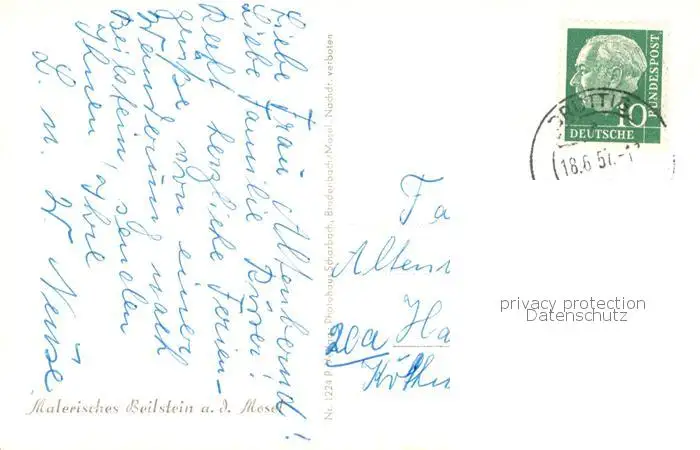 Liebe Frau Altenbernd!
Liebe Familie Röser!
Recht herzliche Ferien-
grüße von einer
Wanderung nach
Beilstein, senden
Ihnen, Ihre
L. u. W. Neuse
Malerisches Beilstein a. d. Mosel
Nr. 1224 Photohaus Scharbach, Bruderbach/Mosel. Nachdr. verboten
DEUTSCHE
BUNDESPOST
10
18.6.57.-1
Fa
Alten
20a Ha
Köthn
privacy protection
Datenschutz